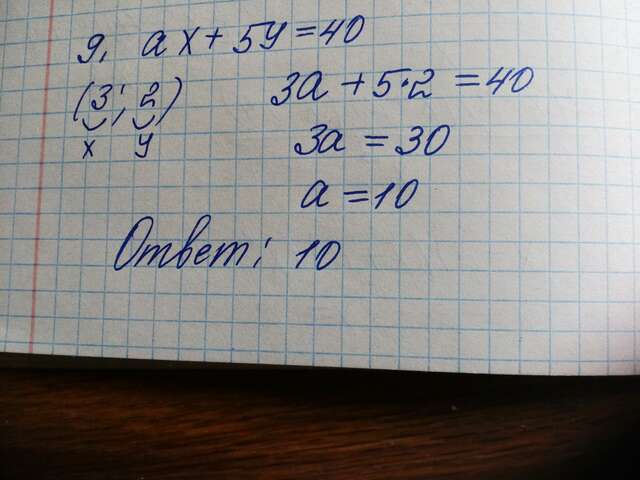 9. ax + 5y = 40
(3; 2) 3a + 5·2 = 40
x y 3a = 30
a = 10
Ответ: 10